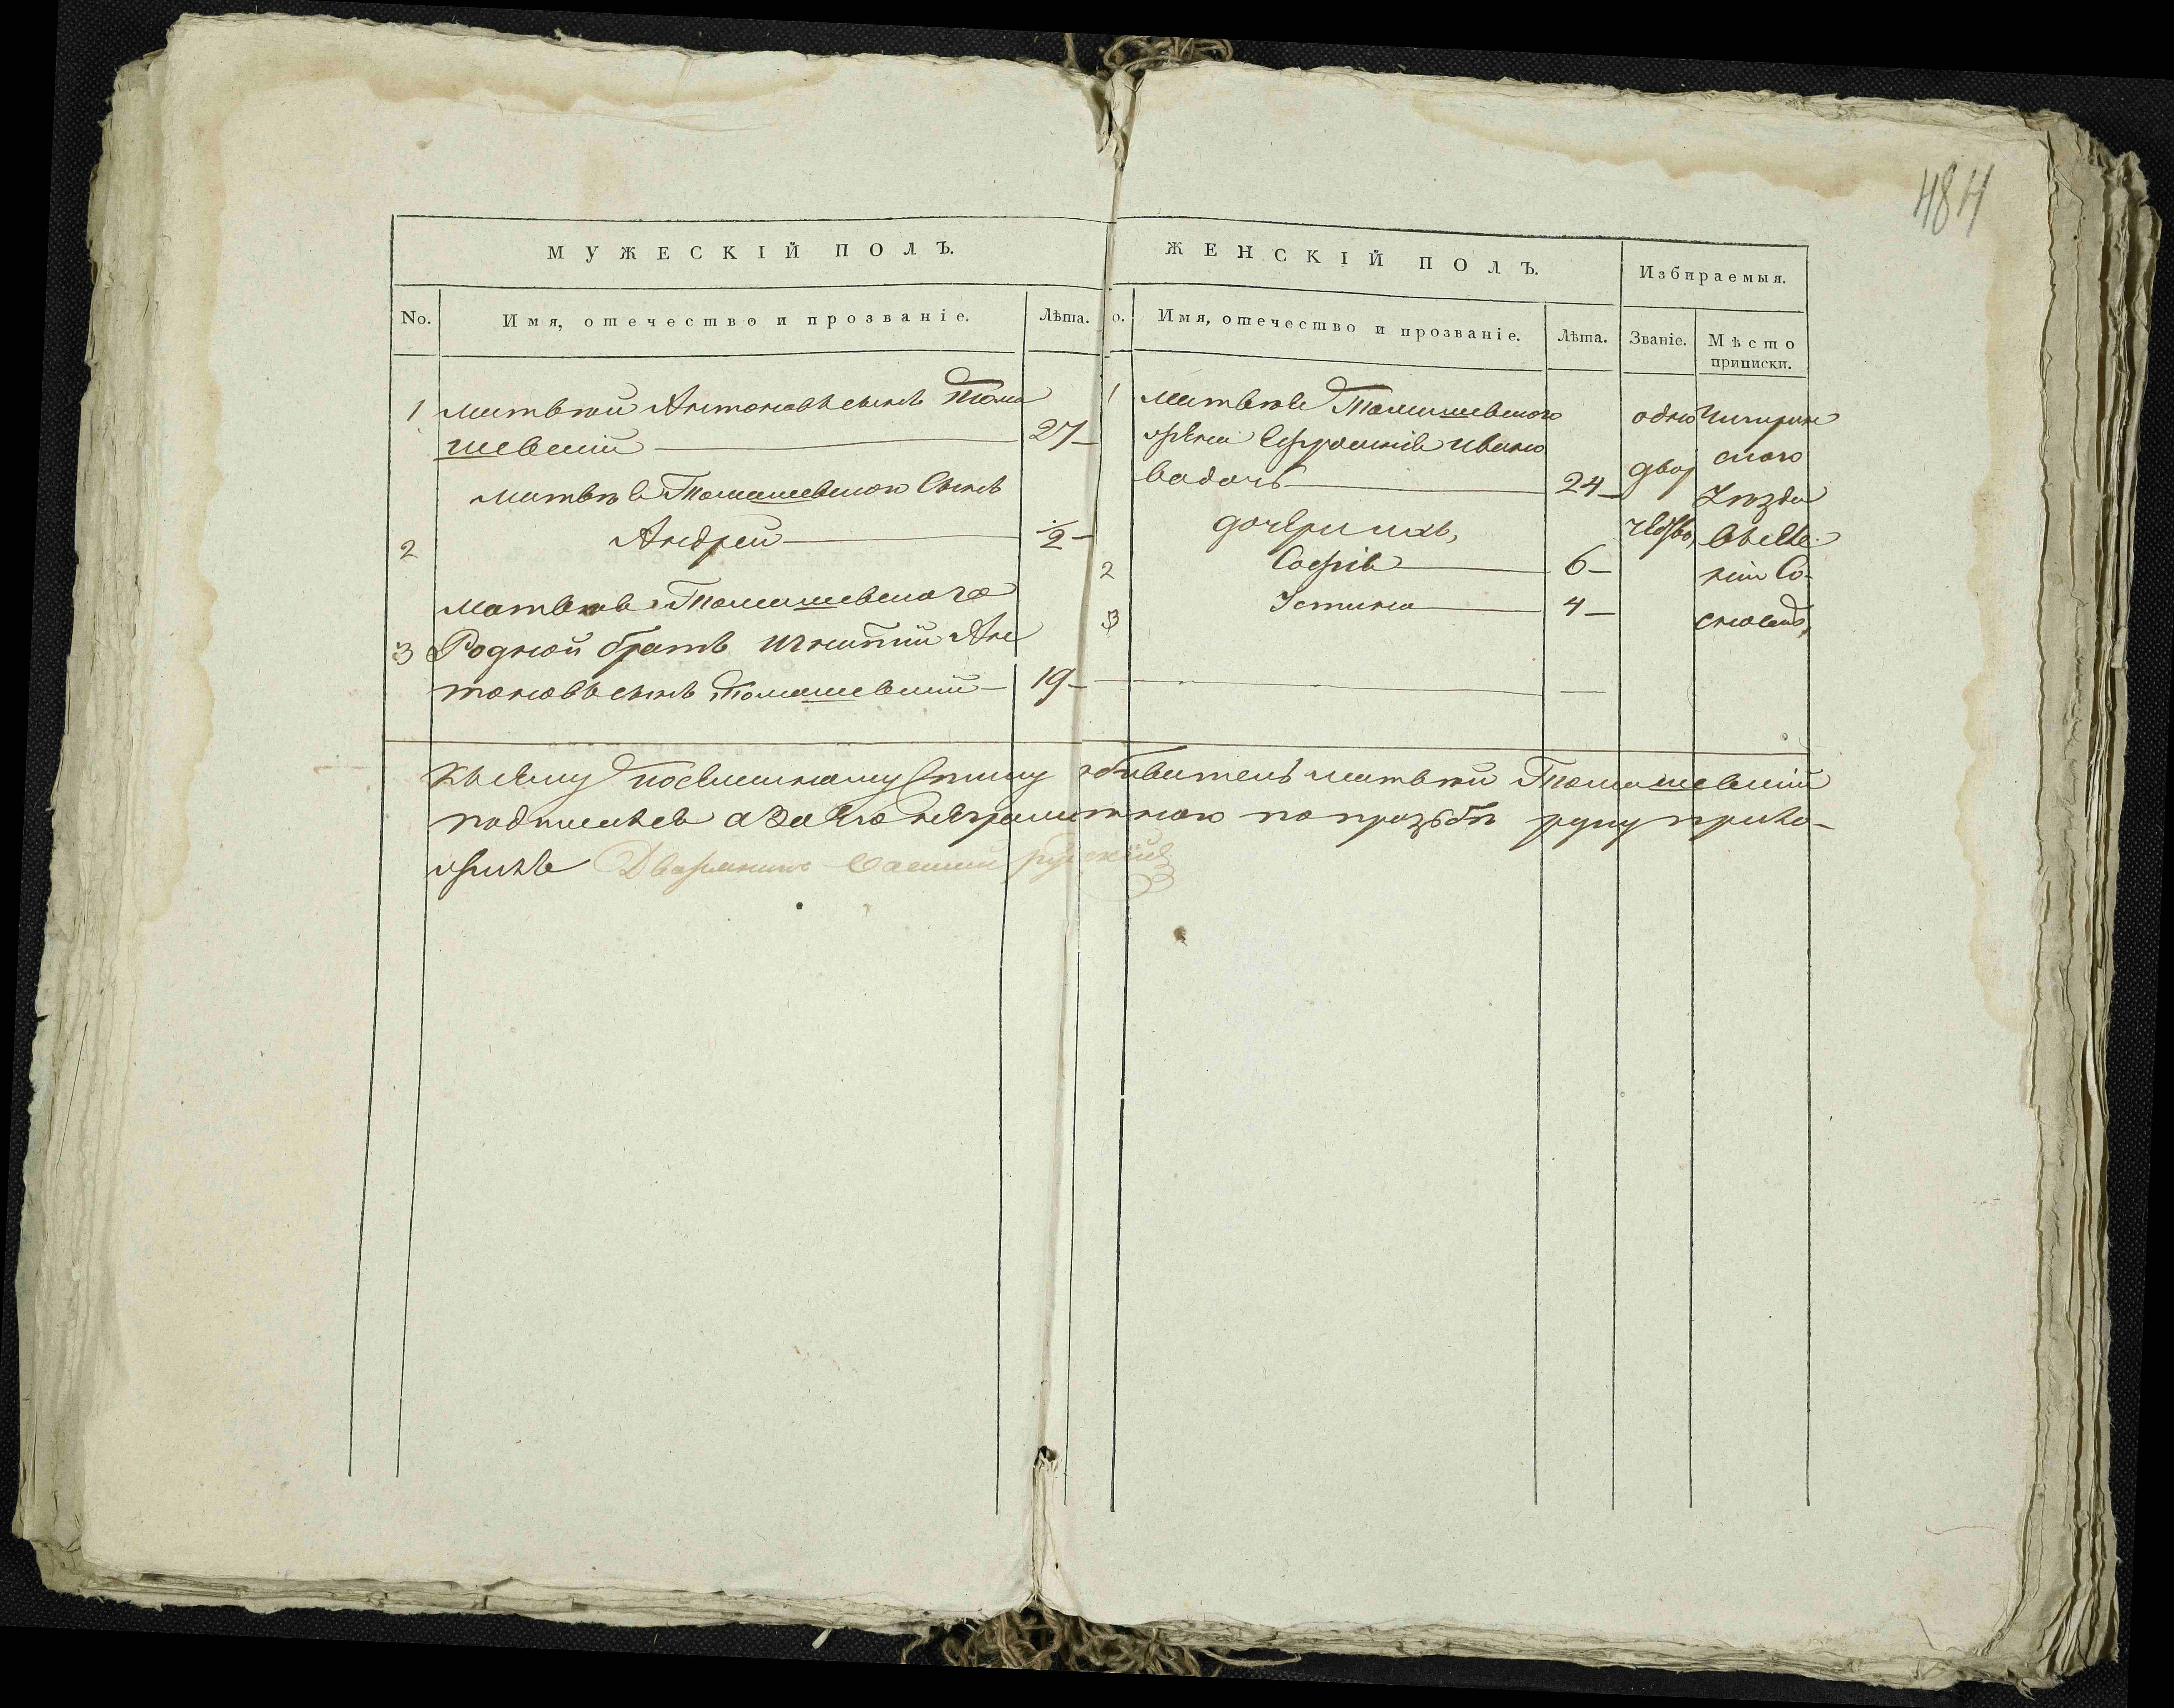 484
МУЖЕСКІЙ ПОЛЪ.
ЖЕНСКІЙ ПОЛЪ.
Избираемыя.
No.
Имя, отечество и прозваніе.
Лѣта.
о.
Имя, отечество и прозваніе.
Лѣта.
Званіе.
Мѣсто
приписки.
1 Матвѣй Антоновъ сынъ Тома
шевскій 27
Матвѣя Томашевского сынъ
2 Андрей ½
Матвѣя Томашевского
3 Родной братъ Игнатій Ан
тоновъ сынъ Томашевскій 19
1 Матвѣя Томашевского
жена Ефросинія Ивано
ва дочь 24
дочери ихъ,
2 Софія 6
3 Устина 4
одно
двор
Чигирин
ского
уѣзда
Къ сему посемейному списку обыватель Матвѣй Томашевскій
подписался а за его неграмотного по прозбѣ руку прило-
жилъ Дворянинъ